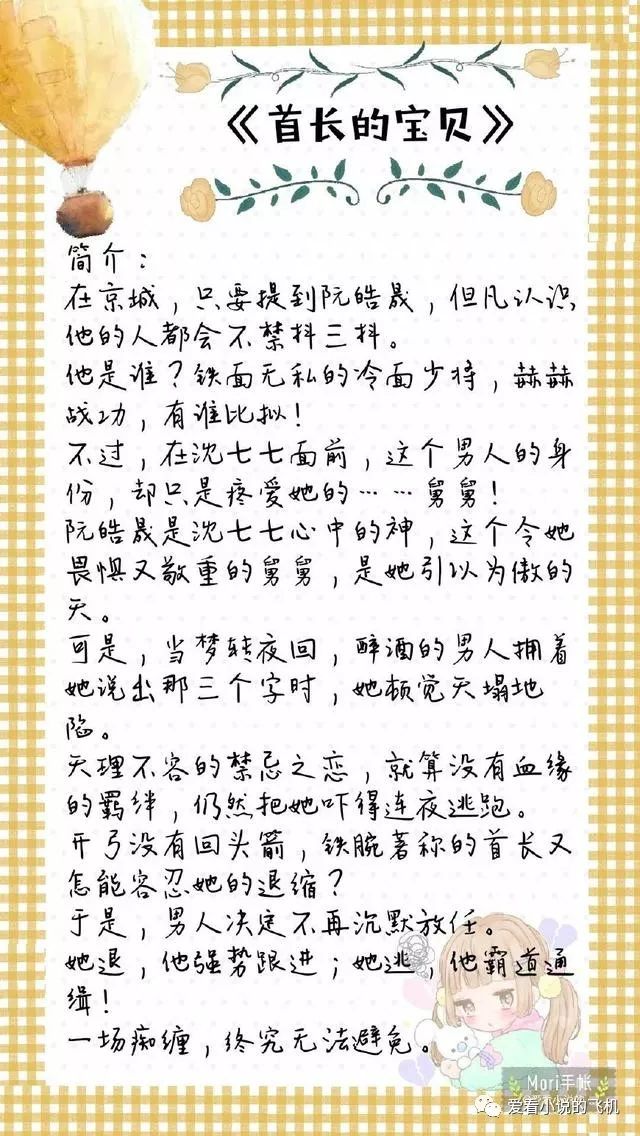 《首长的宝贝》
简介：
在京城，只要提到阮皓晟，但凡认识
他的人都会不禁抖三抖。
他是谁？铁面无私的冷面少将，赫赫
战功，有谁比拟！
不过，在沈七七面前，这个男人的身
份，却只是疼爱她的……舅舅！
阮皓晟是沈七七心中的神，这个令她
畏惧又敬重的舅舅，是她引以为傲的
天。
可是，当梦转夜回，醉酒的男人拥着
她说出那三个字时，她顿觉天塌地
陷。
天理不容的禁忌之恋，就算没有血缘
的羁绊，仍然把她吓得连夜逃跑。
开弓没有回头箭，铁腕著称的首长又
怎能容忍她的退缩？
于是，男人决定不再沉默放任。
她退，他强势跟进；她逃，他霸道通
缉！
一场痴缠，终究无法避免。
Mori手帐
爱看小说的飞机